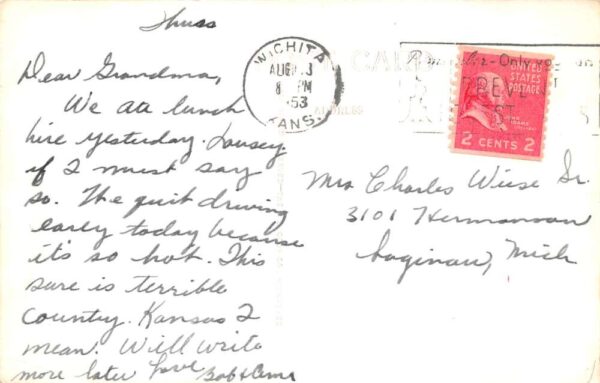 Thurs
Dear Grandma,
We ate lunch
hire yesterday. Lousey
if I must say
so. We quit driving
early today because
it's so hot. This
sure is terrible
country. Kansas I
mean. Will write
more later Love Bob &
WICHITA
AUG 13
8 PM
1953
KANS.
CARD
Remember-Only you can
PREVENT
UNITED
STATES
POSTAGE
2 CENTS 2
Mrs Charles Wiese Sr.
3101 Hermansau
Saginaw, Mich